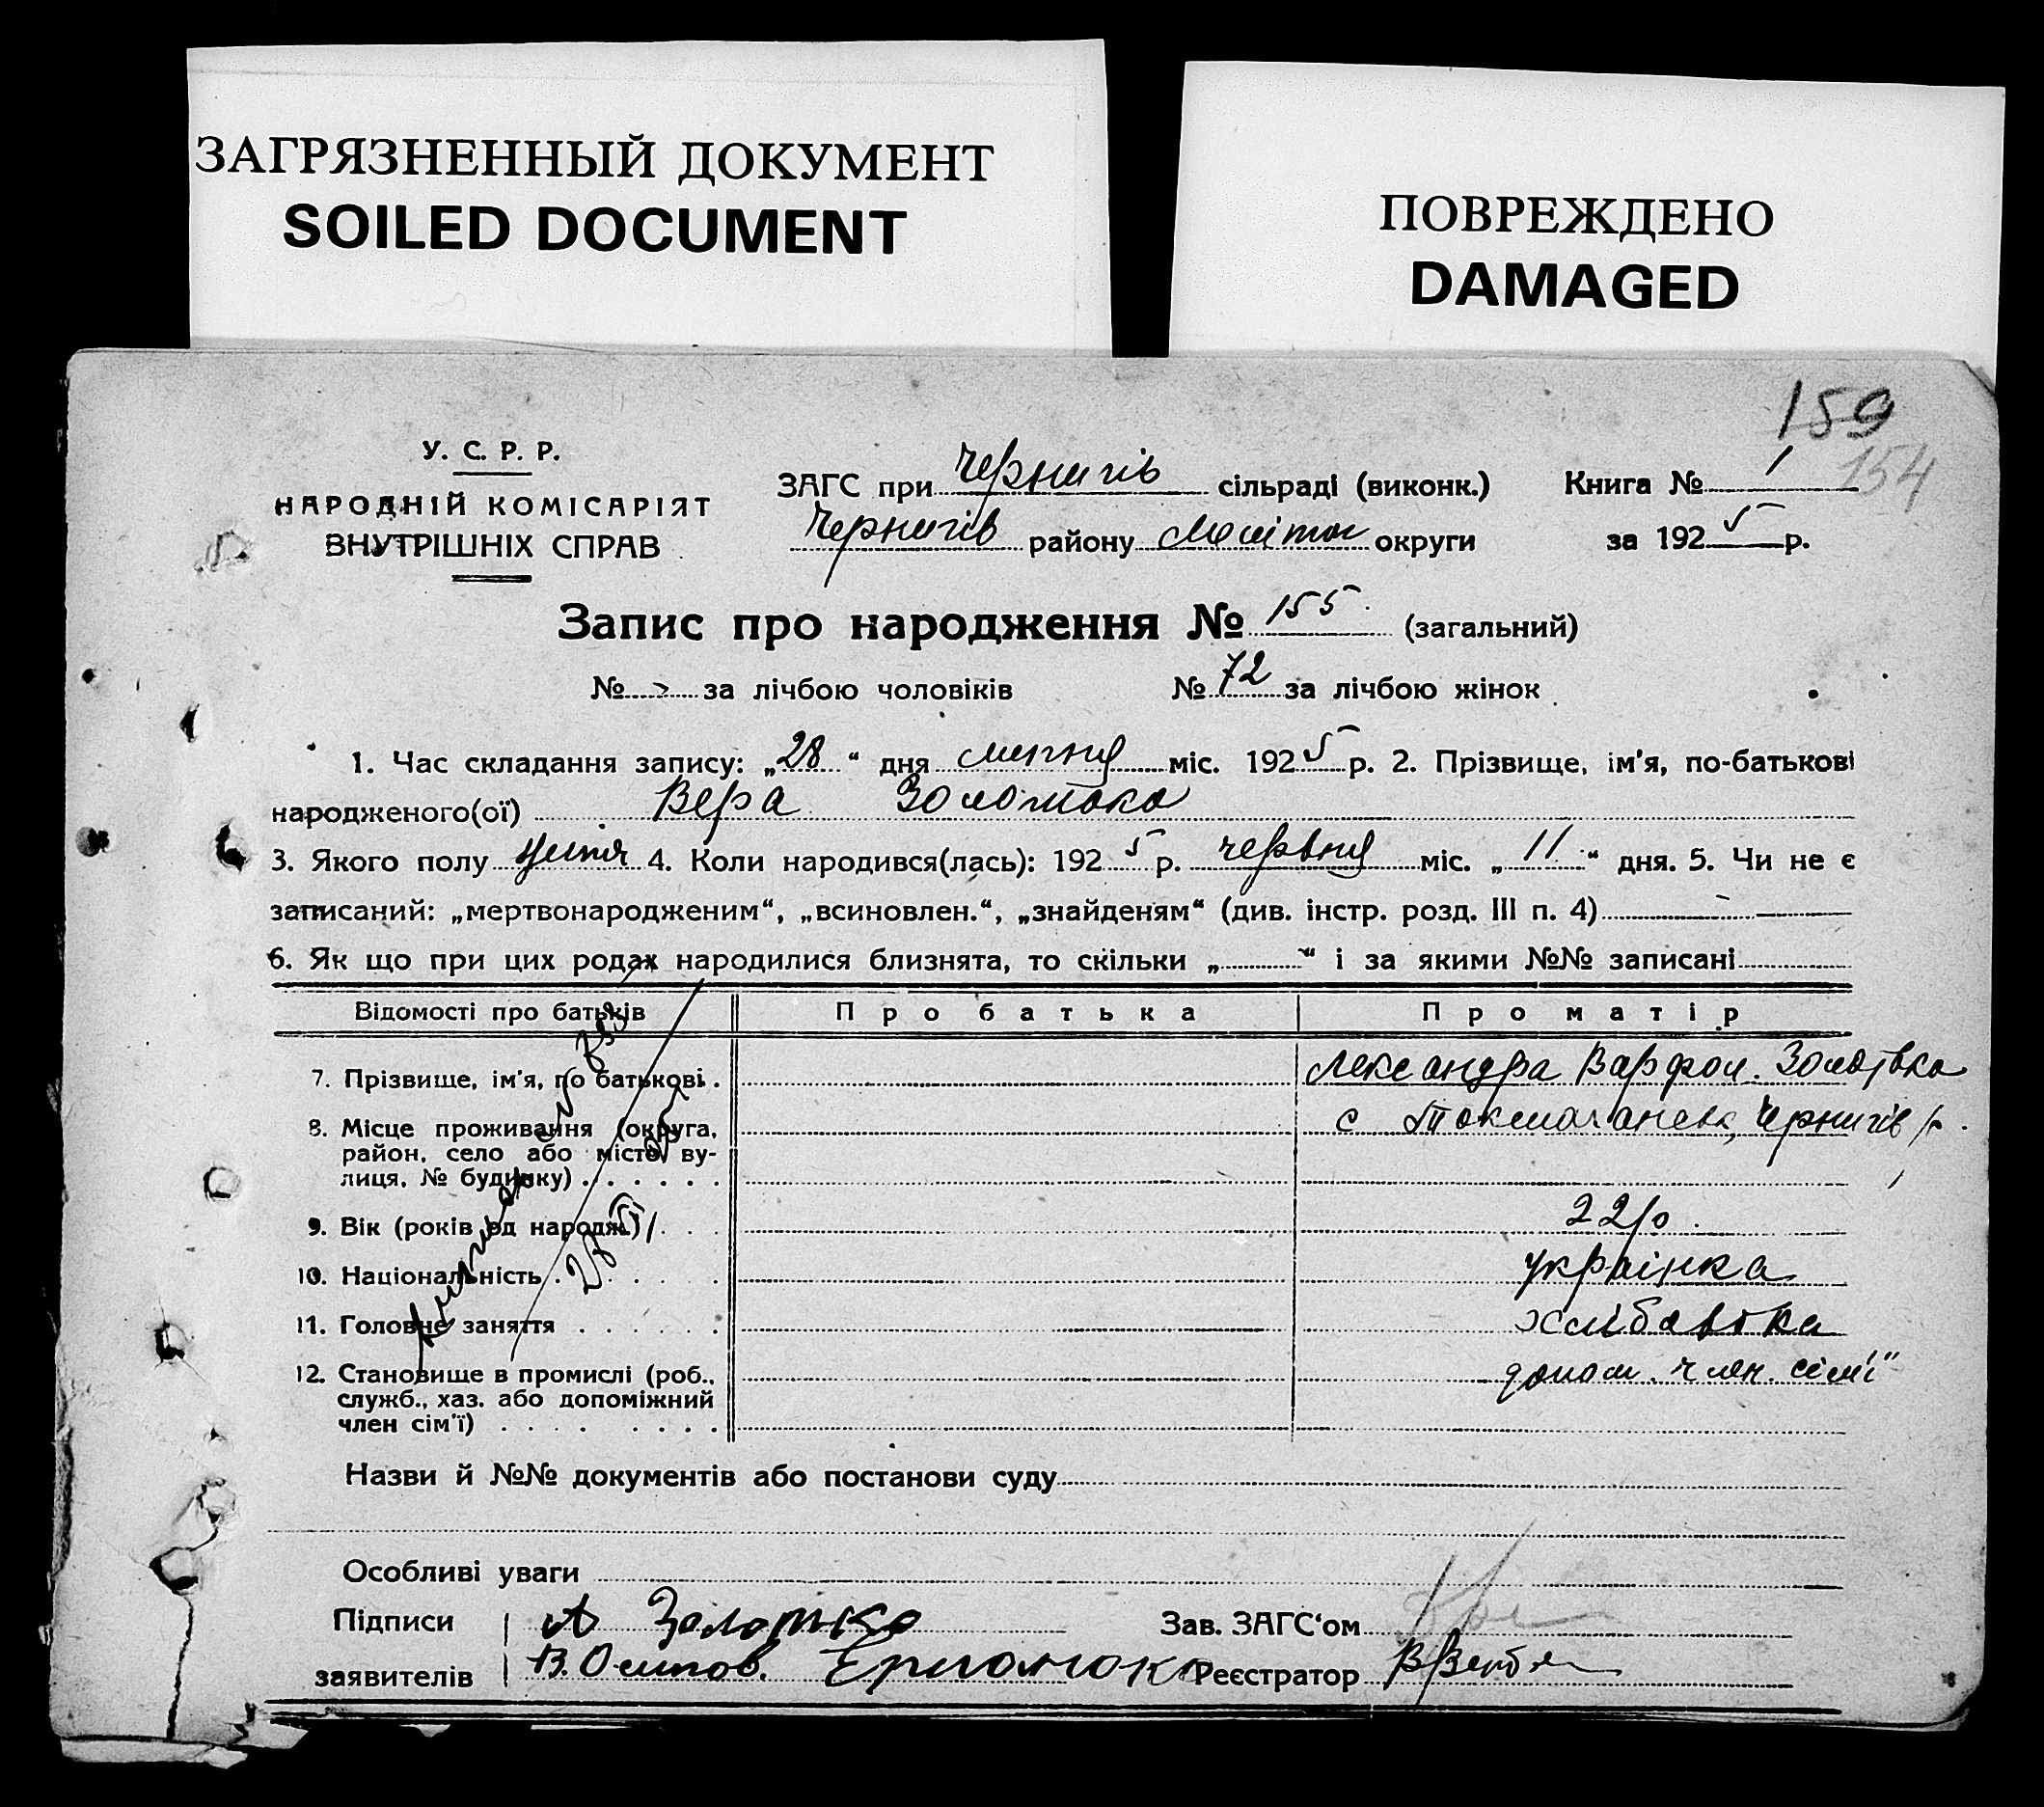 ЗАГРЯЗНЕННЫЙ ДОКУМЕНТ
SOILED DOCUMENT
ПОВРЕЖДЕНО
DAMAGED
159
154
У. С. Р. Р.
НАРОДНІЙ КОМІСАРІЯТ
ВНУТРІШНІХ СПРАВ
ЗАГС при Чернигів сільраді (виконк.)
Чернигів району Меліт округи
Книга № 1
за 1925 р.
Запис про народження № 155 (загальний)
№ за лічбою чоловіків № 72 за лічбою жінок
1. Час складання запису: „28“ дня липня міс. 1925 р. 2. Прізвище, ім'я, по-батькові
народженого(ої) Вера Золотько
3. Якого полу 4. Коли народився(лась): 1925 р. червня міс. „11“ дня. 5. Чи не є
записаний: „мертвонародженим“, „всиновлен.“, „знайденям“ (див. інстр. розд. III п. 4)
6. Як що при цих родах народилися близнята, то скільки „ “ і за якими №№ записані
Відомості про батьків Про батька Про матір
7. Прізвище, ім'я, по батькові. Лександра Варфол.
8. Місце проживання (округа, с Чернигів р.
район, село або місто, ву-
лиця, № будинку)
9. Вік (років од народж.) 22 р.
10. Національність українка
11. Головне заняття
12. Становище в промислі (роб., допом. член. сімї
служб., хаз. або допоміжний
член сім'ї)
Назви й №№ документів або постанови суду
Особливі уваги
Підписи А Золотько Зав. ЗАГС'ом
заявителів В. Осипов. Реєстратор